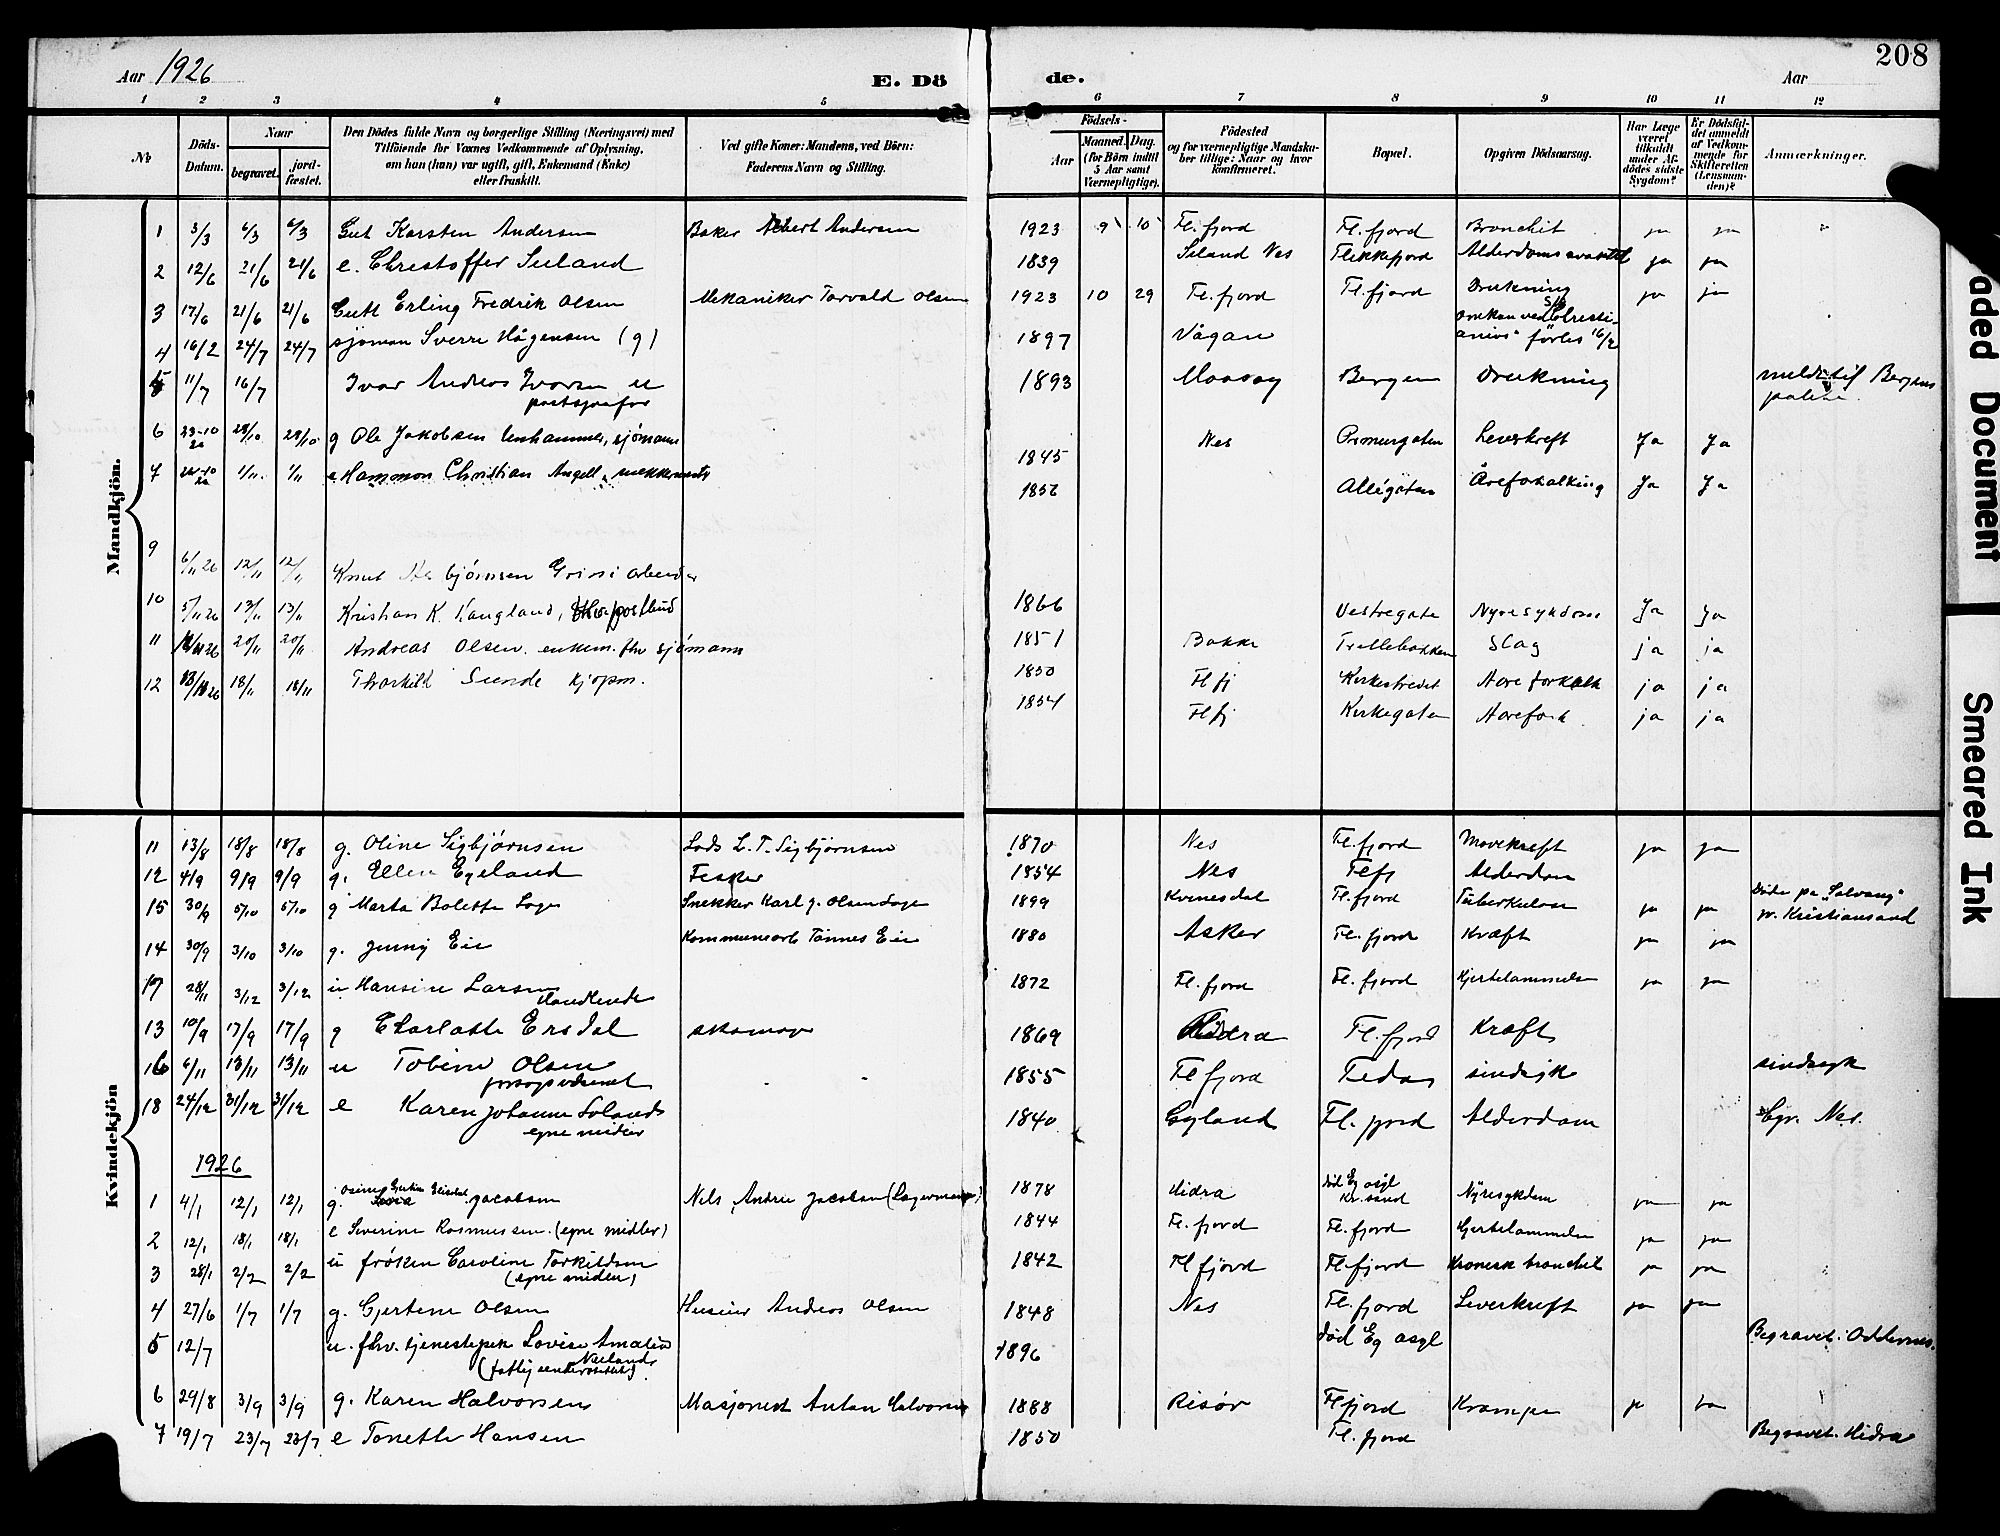 208
Aar 1926 E. Dö de. Aar
1 2 3 4 5 6 7 8 9 10 11 12
No
Döds-Datum.
Naar
begravet.
jord-fæstet.
Den Dödes fulde Navn og borgerlige Stilling (Næringsvei) med
Tilföiende for Voxnes Vedkommende af Oplysning,
om han (hun) var ugift, gift, Enkemand (Enke)
eller fraskilt.
Ved gifte Koner: Mandens, ved Börn:
Faderens Navn og Stilling.
Födsels-
Aar
Maaned. Dag.
(for Börn indtil
5 Aar samt
Værnepligtige).
Födested
og for værnepligtige Mandska-
ber tillige: Naar og hvor
konfirmeret.
Bopæl.
Opgiven Dödsaarsag.
Har Læge
været
tilkaldt
under Af-
dödes sidste
Sygdom?
Er Dödsfal-
det anmeldt
af Vedkom-
mende for
Skifteretten
(Lensman-
den)?
Anmærkninger.
Mandkjön.
1 3/3 6/3 6/3 Gut Karsten Andersen Baker Albert Andersen 1923 9 10 Fl. fjord Fl. fjord Bronchit ja ja
2 12/6 21/6 21/6 e. Christoffer Seland 1839 Seland Nes Flekkefjord Alderdomssvakhet ja ja
3 17/6 21/6 21/6 Gutt Erling Fredrik Olsen Mekaniker Torvald Olsen 1923 10 29 Fl. fjord Fl. fjord Drukning ja ja
4 16/2 24/7 24/7 sjöman Sverre Hågensen (g) 1897 Vågan Omkom ved S/S "Christi-
anios" forlis 16/2
5 11/7 16/7 Ivar Anders Ivarsen u 1893 Maasøy Bergen Drukning meldt til Bergens
politi.
6 23-10 28/10 28/10 g Ole Jakobsen, sjömann 1845 Nes Leverkreft Ja Ja
7 1/11 1/11 e Hammon Christian Angell 1856 Allégaten Åreforkalking Ja Ja
9 6/11 26 12/11 12/11 Knut Asbjörnsen Grini arbeider
10 5/11 26 13/11 13/11 Kristian K. fhv. postbud 1866 Vestregate Nyresykdom Ja Ja
11 26 20/11 20/11 Andreas Olsen. enkem. fhv sjömann 1851 Bakke Trellebakken Slag ja ja
12 13/11 26 18/11 18/11 Thorkild Sunde kjöpm. 1850 Fl fj Kirkestredet Aareforkalk ja ja
1854 Fl fj Kirkegaten ja ja
Kvindekjön
11 13/8 18/8 18/8 g. Oline Sigbjørnsen Lods L. T. Sigbjørnsen 1870 Nes Fl. fjord Mavekreft ja ja
12 4/9 9/9 9/9 g. Ellen Egeland Fisker 1854 Nes Flfj Alderdom
15 30/9 5/10 5/10 g Marta Bolette Snekker Karl J. Olsen 1899 Kvinesdal Fl. fjord Tuberkulose ja ja Döde på "Solvang"
pr. Kristiansand
14 30/9 3/10 3/10 g. Jenny Eie Kommunearb Tönnes Eie 1880 Asker Fl. fjord Kræft ja ja
17 28/11 3/12 3/12 u Hansine Larsen 1872 Fl. fjord Fl. fjord Hjertelammelse ja ja
Handlende
13 10/9 17/9 17/9 g Charlotte Ersdal skomager 1869 Hidra Fl. fjord Kræft
16 6/11 13/11 13/11 u Tobine Olsen 1855 Fl fjord Feda sindsyk sindsyk
18 24/12 31/12 31/12 e Karen Johanne Solands 1840 Gyland Fl. fjord Alderdom Bgr. Nes.
egne midler
1926
1 4/1 12/1 12/1 g. Jacobsen Nels Andrie Jacobsen (Lagermann) 1878 Hidra död Eg asyl
Kr. sand Nyresykdom ja ja
2 12/1 18/1 18/1 e Severine Rasmussen. (egne midler) 1844 Fl. fjord Fl. fjord Hjertelammelse ja ja
3 28/1 2/2 2/2 u frøken Caroline Torkildsen 1842 Fl fjord Fl. fjord Kronisk bronchit ja ja
(egne midler)
4 27/6 1/7 1/7 g. Gjertine Olsen Huseier Andreas Olsen 1848 Nes Fl. fjord Leverkreft ja ja
5 12/7 u. fhv. tjenestepik Lovise Amalia 1896 död Eg asyl Begravet: Oddernes.
6 29/8 3/9 3/9 g. Karen Halvorsen Masjonist Anton Halvorsen 1888 Risör Fl fjord Krampe ja ja
7 19/7 23/7 23/7 e Tonette Hansen 1850 Fl. fjord Begravet. Hidra
aded Document
Smeared Ink